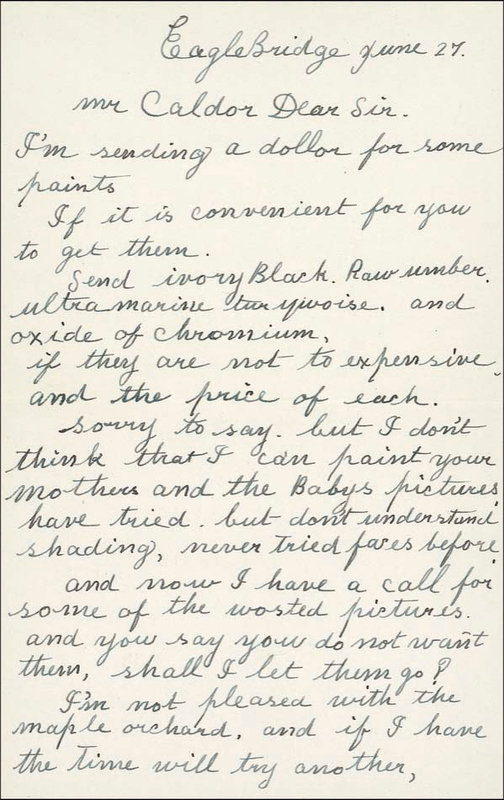 EagleBridge June 27.
mr Caldor Dear Sir.
I'm sending a dollor for some
paints
If it is convenient for you
to get them.
Send ivory Black. Raw umber.
ultramarine turywoise. and
oxide of chromium,
if they are not to expensive,
and the price of each.
sorry to say. but I don't
think that I can paint your
mothers and the Babys pictures,
have tried. but don't understand
shading, never tried faces before
and now I have a call for
some of the wosted pictures.
and you say you do not want
them, shall I let them go?
I'm not pleased with the
maple orchard. and if I have
the time will try another,